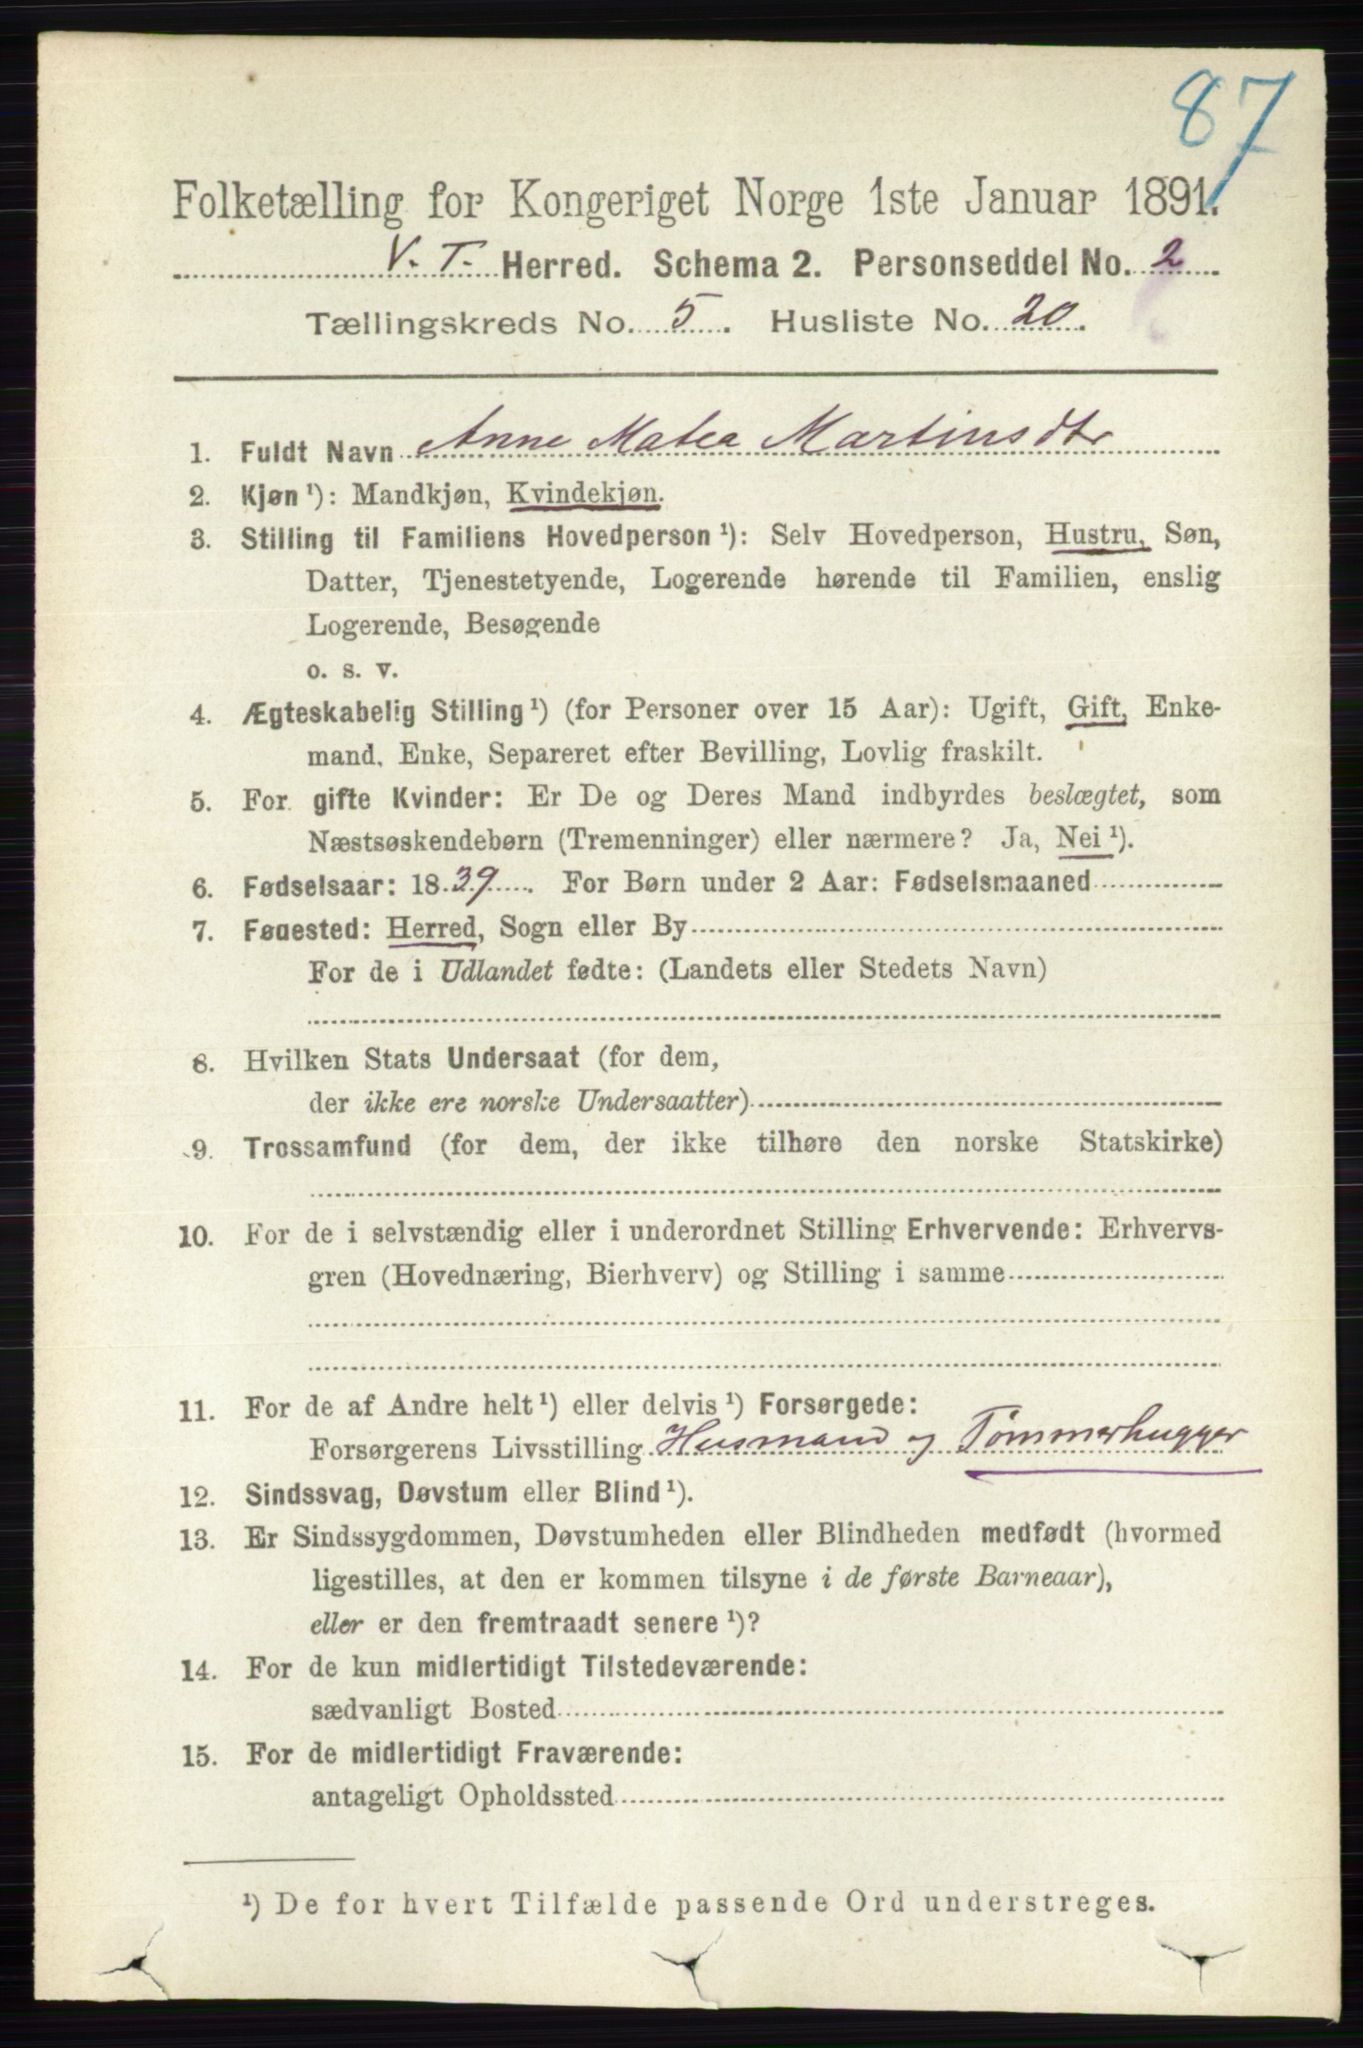 87
Folketælling for Kongeriget Norge 1ste Januar 1891.
V. T. Herred. Schema 2. Personseddel No. 2
Tællingskreds No. 5. Husliste No. 20.
1. Fuldt Navn Anne Matea Martinsdtr
2. Kjøn ¹): Mandkjøn, Kvindekjøn.
3. Stilling til Familiens Hovedperson ¹): Selv Hovedperson, Hustru, Søn,
Datter, Tjenestetyende, Logerende hørende til Familien, enslig
Logerende, Besøgende
o. s. v.
4. Ægteskabelig Stilling ¹) (for Personer over 15 Aar): Ugift, Gift, Enke-
mand, Enke, Separeret efter Bevilling, Lovlig fraskilt.
5. For gifte Kvinder: Er De og Deres Mand indbyrdes beslægtet, som
Næstsøskendebørn (Tremenninger) eller nærmere? Ja, Nei ¹).
6. Fødselsaar: 1839. For Børn under 2 Aar: Fødselsmaaned
7. Føuested: Herred, Sogn eller By
For de i Udlandet fødte: (Landets eller Stedets Navn)
8. Hvilken Stats Undersaat (for dem,
der ikke ere norske Undersaatter)
9. Trossamfund (for dem, der ikke tilhøre den norske Statskirke)
10. For de i selvstændig eller i underordnet Stilling Erhvervende: Erhvervs-
gren (Hovednæring, Bierhverv) og Stilling i samme
11. For de af Andre helt ¹) eller delvis ¹) Forsørgede:
Forsørgerens Livsstilling Husmand og Tømmerhugger
12. Sindssvag, Døvstum eller Blind ¹).
13. Er Sindssygdommen, Døvstumheden eller Blindheden medfødt (hvormed
ligestilles, at den er kommen tilsyne i de første Barneaar),
eller er den fremtraadt senere ¹)?
14. For de kun midlertidigt Tilstedeværende:
sædvanligt Bosted
15. For de midlertidigt Fraværende:
antageligt Opholdssted
¹) De for hvert Tilfælde passende Ord understreges.